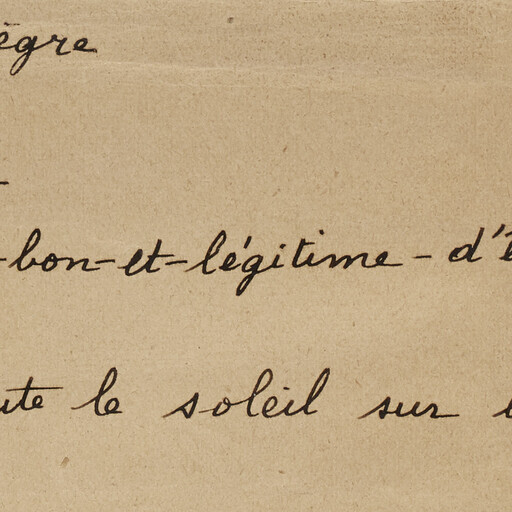 ègre
-
-bon-et-légitime-d'ê
ute le soleil sur l